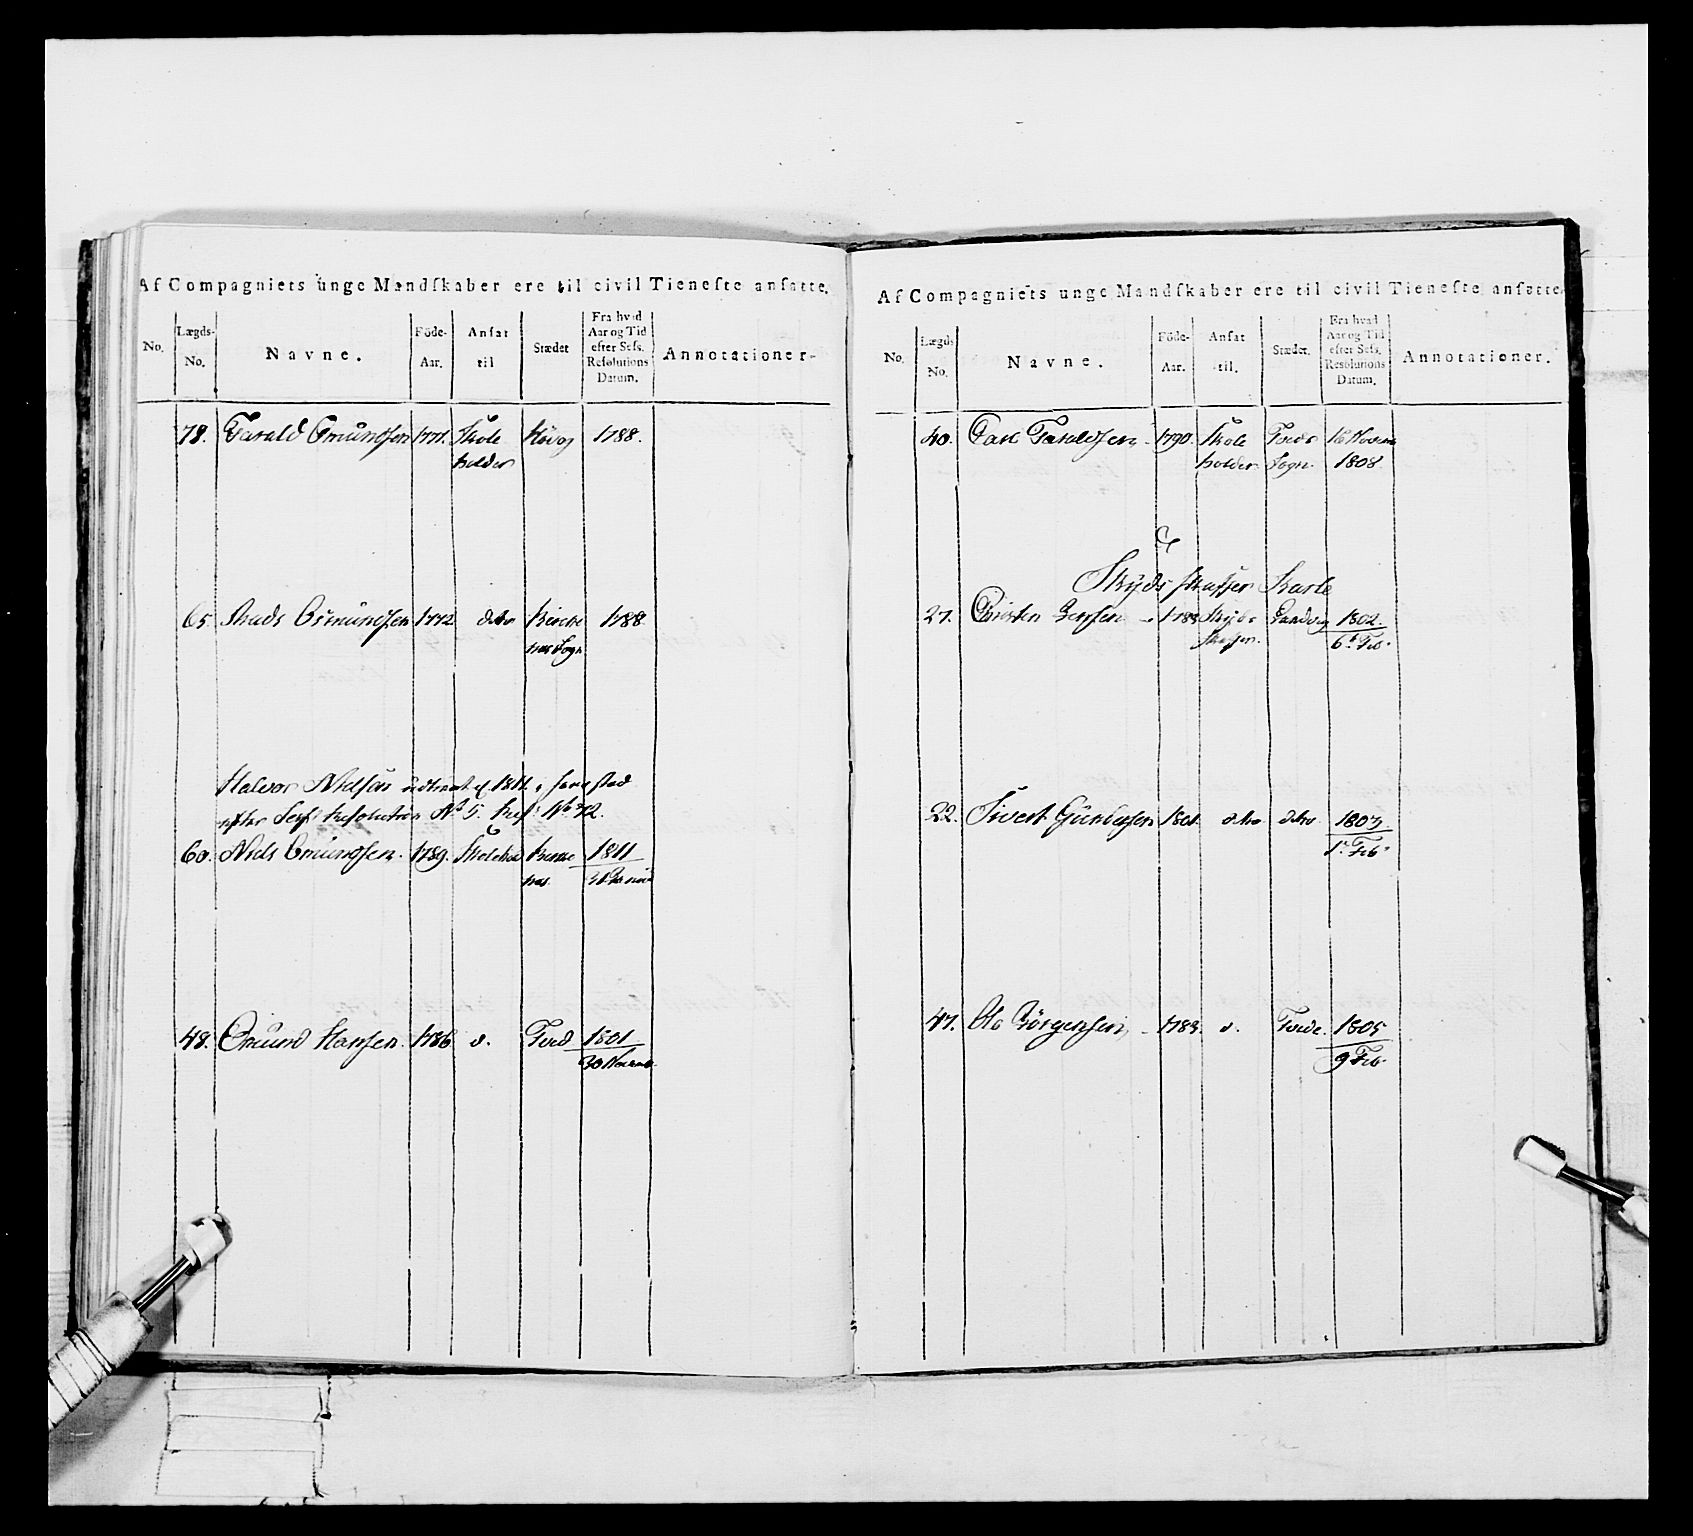 Af Compagniets unge Mandſkaber ere til civil Tieneſte anſatte.
No. Lægds-No. Navne. Föde-Aar. Anſat til Stædet Fra hvad Aar og Tid efter Sesſ. Reſolutions Datum. Annotationer.
78. Tarald Omundſen 1771. Skole Høvog 1788.
holder
65. Mads Osmundſen 1772 ditto Birche 1788
næs Sogn
Halvor Nielſen 1811
efter Seſs: Resolution No 5.
60. Niels Omundſen. 1789. Skoleho Birke 1811
næs
48. Omund Hanſen. 1786 d. Tved 1801
30 Novemb.
Af Compagniets unge Mandſkaber ere til civil Tieneſte anſatte.
No. Lægds No. Navne. Föde-Aar. Anſat til. Stædet. Fra hvad Aar og Tid efter Sesſ. Resolutions Datum. Annotationer.
40. Carl Taraldſen 1790. Skole Tveds 16 Novem
holder Sogn. 1808
Skyds ſkaffer Karle
27. Christen Jenſen 1783 Skyds Randvig 1802.
ſkaffer. 6t Feb
22. Sivert Gunderſen 1801. ditto ditto 1803
1t Feb
47. Ole Börgenſen 1783. d. Tvede. 1805
9 Feb